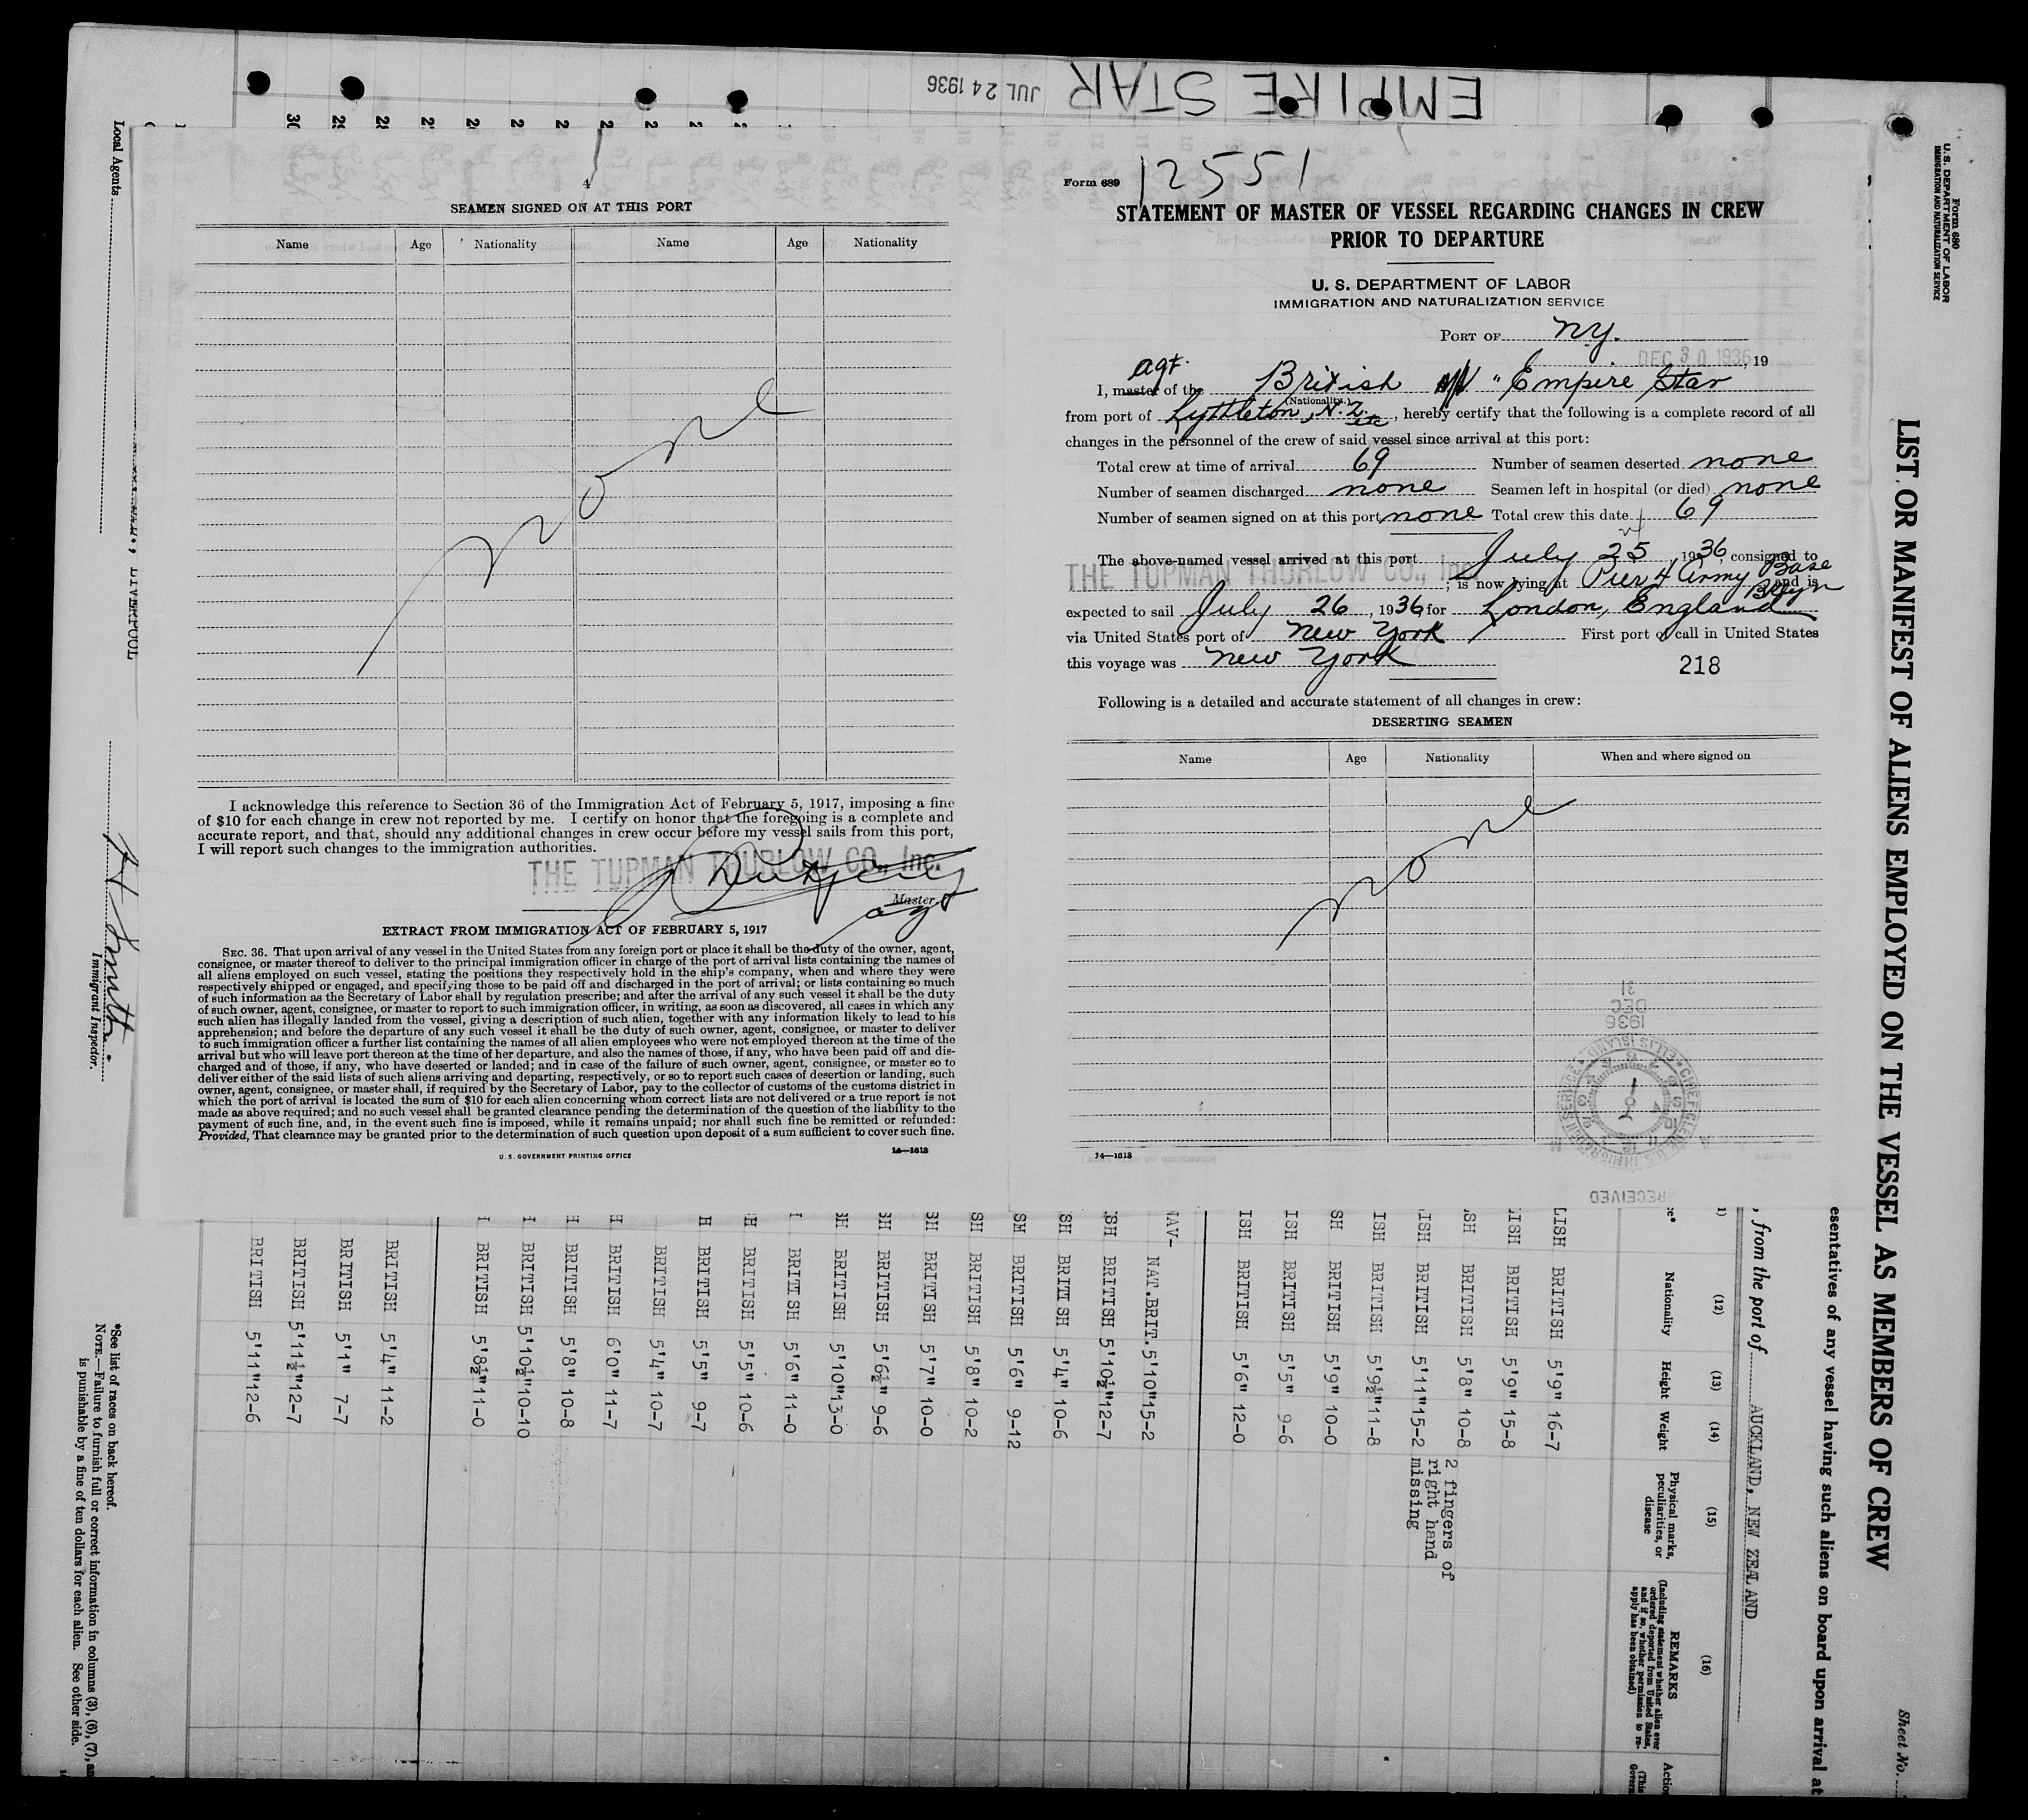 EMPIRE STAR
JUL 24 1936
4
SEAMEN SIGNED ON AT THIS PORT
Name Age Nationality Name Age Nationality
none
I acknowledge this reference to Section 36 of the Immigration Act of February 5, 1917, imposing a fine
of $10 for each change in crew not reported by me. I certify on honor that the foregoing is a complete and
accurate report, and that, should any additional changes in crew occur before my vessel sails from this port,
I will report such changes to the immigration authorities.
THE TUPMAN THURLOW CO., Inc.
Master
agt
EXTRACT FROM IMMIGRATION ACT OF FEBRUARY 5, 1917
SEC. 36. That upon arrival of any vessel in the United States from any foreign port or place it shall be the duty of the owner, agent,
consignee, or master thereof to deliver to the principal immigration officer in charge of the port of arrival lists containing the names of
all aliens employed on such vessel, stating the positions they respectively hold in the ship's company, when and where they were
respectively shipped or engaged, and specifying those to be paid off and discharged in the port of arrival; or lists containing so much
of such information as the Secretary of Labor shall by regulation prescribe; and after the arrival of any such vessel it shall be the duty
of such owner, agent, consignee, or master to report to such immigration officer, in writing, as soon as discovered, all cases in which any
such alien has illegally landed from the vessel, giving a description of such alien, together with any information likely to lead to his
apprehension; and before the departure of any such vessel it shall be the duty of such owner, agent, consignee, or master to deliver
to such immigration officer a further list containing the names of all alien employees who were not employed thereon at the time of the
arrival but who will leave port thereon at the time of her departure, and also the names of those, if any, who have been paid off and dis-
charged and of those, if any, who have deserted or landed; and in case of the failure of such owner, agent, consignee, or master so to
deliver either of the said lists of such aliens arriving and departing, respectively, or so to report such cases of desertion or landing, such
owner, agent, consignee, or master shall, if required by the Secretary of Labor, pay to the collector of customs of the customs district in
which the port of arrival is located the sum of $10 for each alien concerning whom correct lists are not delivered or a true report is not
made as above required; and no such vessel shall be granted clearance pending the determination of the question of the liability to the
payment of such fine, and, in the event such fine is imposed, while it remains unpaid; nor shall such fine be remitted or refunded:
Provided, That clearance may be granted prior to the determination of such question upon deposit of a sum sufficient to cover such fine.
U. S. GOVERNMENT PRINTING OFFICE 14—1613
Form 689 12551
STATEMENT OF MASTER OF VESSEL REGARDING CHANGES IN CREW
PRIOR TO DEPARTURE
U. S. DEPARTMENT OF LABOR
IMMIGRATION AND NATURALIZATION SERVICE
PORT OF N.Y.
DEC 30 1936, 19
agt.
I, master of the British M/V "Empire Star
(Nationality.)
from port of Lyttleton, N.Z. etc, hereby certify that the following is a complete record of all
changes in the personnel of the crew of said vessel since arrival at this port:
Total crew at time of arrival 69 Number of seamen deserted none
Number of seamen discharged none Seamen left in hospital (or died) none
Number of seamen signed on at this port none Total crew this date 69
The above-named vessel arrived at this port July 25, 1936, consigned to
THE TUPMAN THURLOW CO., Inc.; is now lying at Pier 4 Army Base Bklyn and is
expected to sail July 26, 1936, for London, England
via United States port of New York First port of call in United States
this voyage was New York
218
Following is a detailed and accurate statement of all changes in crew:
DESERTING SEAMEN
Name Age Nationality When and where signed on
none
14—1613
RECEIVED
1936
DEC
31
CHIEF CLERK, U.S. IMMIGRATION SERVICE
ELLIS ISLAND
Form 680
U. S. DEPARTMENT OF LABOR
IMMIGRATION AND NATURALIZATION SERVICE
LIST OR MANIFEST OF ALIENS EMPLOYED ON THE VESSEL AS MEMBERS OF CREW
Sheet No.
esentatives of any vessel having such aliens on board upon arrival at
, from the port of AUCKLAND, NEW ZEALAND
(12) (13) (14) (15) (16)
Nationality Height Weight Physical marks, peculiarities, or disease REMARKS
(Including statement whether alien ever ordered deported from United States, and if so, whether permission to re-apply has been obtained)
LISH BRITISH 5'9" 16-7
LISH BRITISH 5'9" 15-8
ISH BRITISH 5'8" 10-8
LISH BRITISH 5'11" 15-2 2 fingers of right hand missing
ISH BRITISH 5'9½" 11-8
SH BRITISH 5'9" 10-0
ISH BRITISH 5'5" 9-6
ISH BRITISH 5'6" 12-0
NAV- NAT.BRIT. 5'10" 15-2
SH BRITISH 5'10½" 12-7
SH BRITISH 5'4" 10-6
SH BRITISH 5'6" 9-12
SH BRITISH 5'8" 10-2
SH BRITISH 5'7" 10-0
SH BRITISH 5'6½" 9-6
SH BRITISH 5'10" 13-0
BRITISH 5'6" 11-0
H BRITISH 5'5" 10-6
H BRITISH 5'5" 9-7
BRITISH 5'4" 10-7
H BRITISH 6'0" 11-7
H BRITISH 5'8" 10-8
BRITISH 5'10½" 10-10
BRITISH 5'8½" 11-0
BRITISH 5'4" 11-2
BRITISH 5'1" 7-7
BRITISH 5'11½" 12-7
BRITISH 5'11" 12-6
LIVERPOOL
Local Agents
Immigrant Inspector.
*See list of races on back hereof.
NOTE.—Failure to furnish full or correct information in columns (3), (6), (7), an
is punishable by a fine of ten dollars for each alien. See other side.